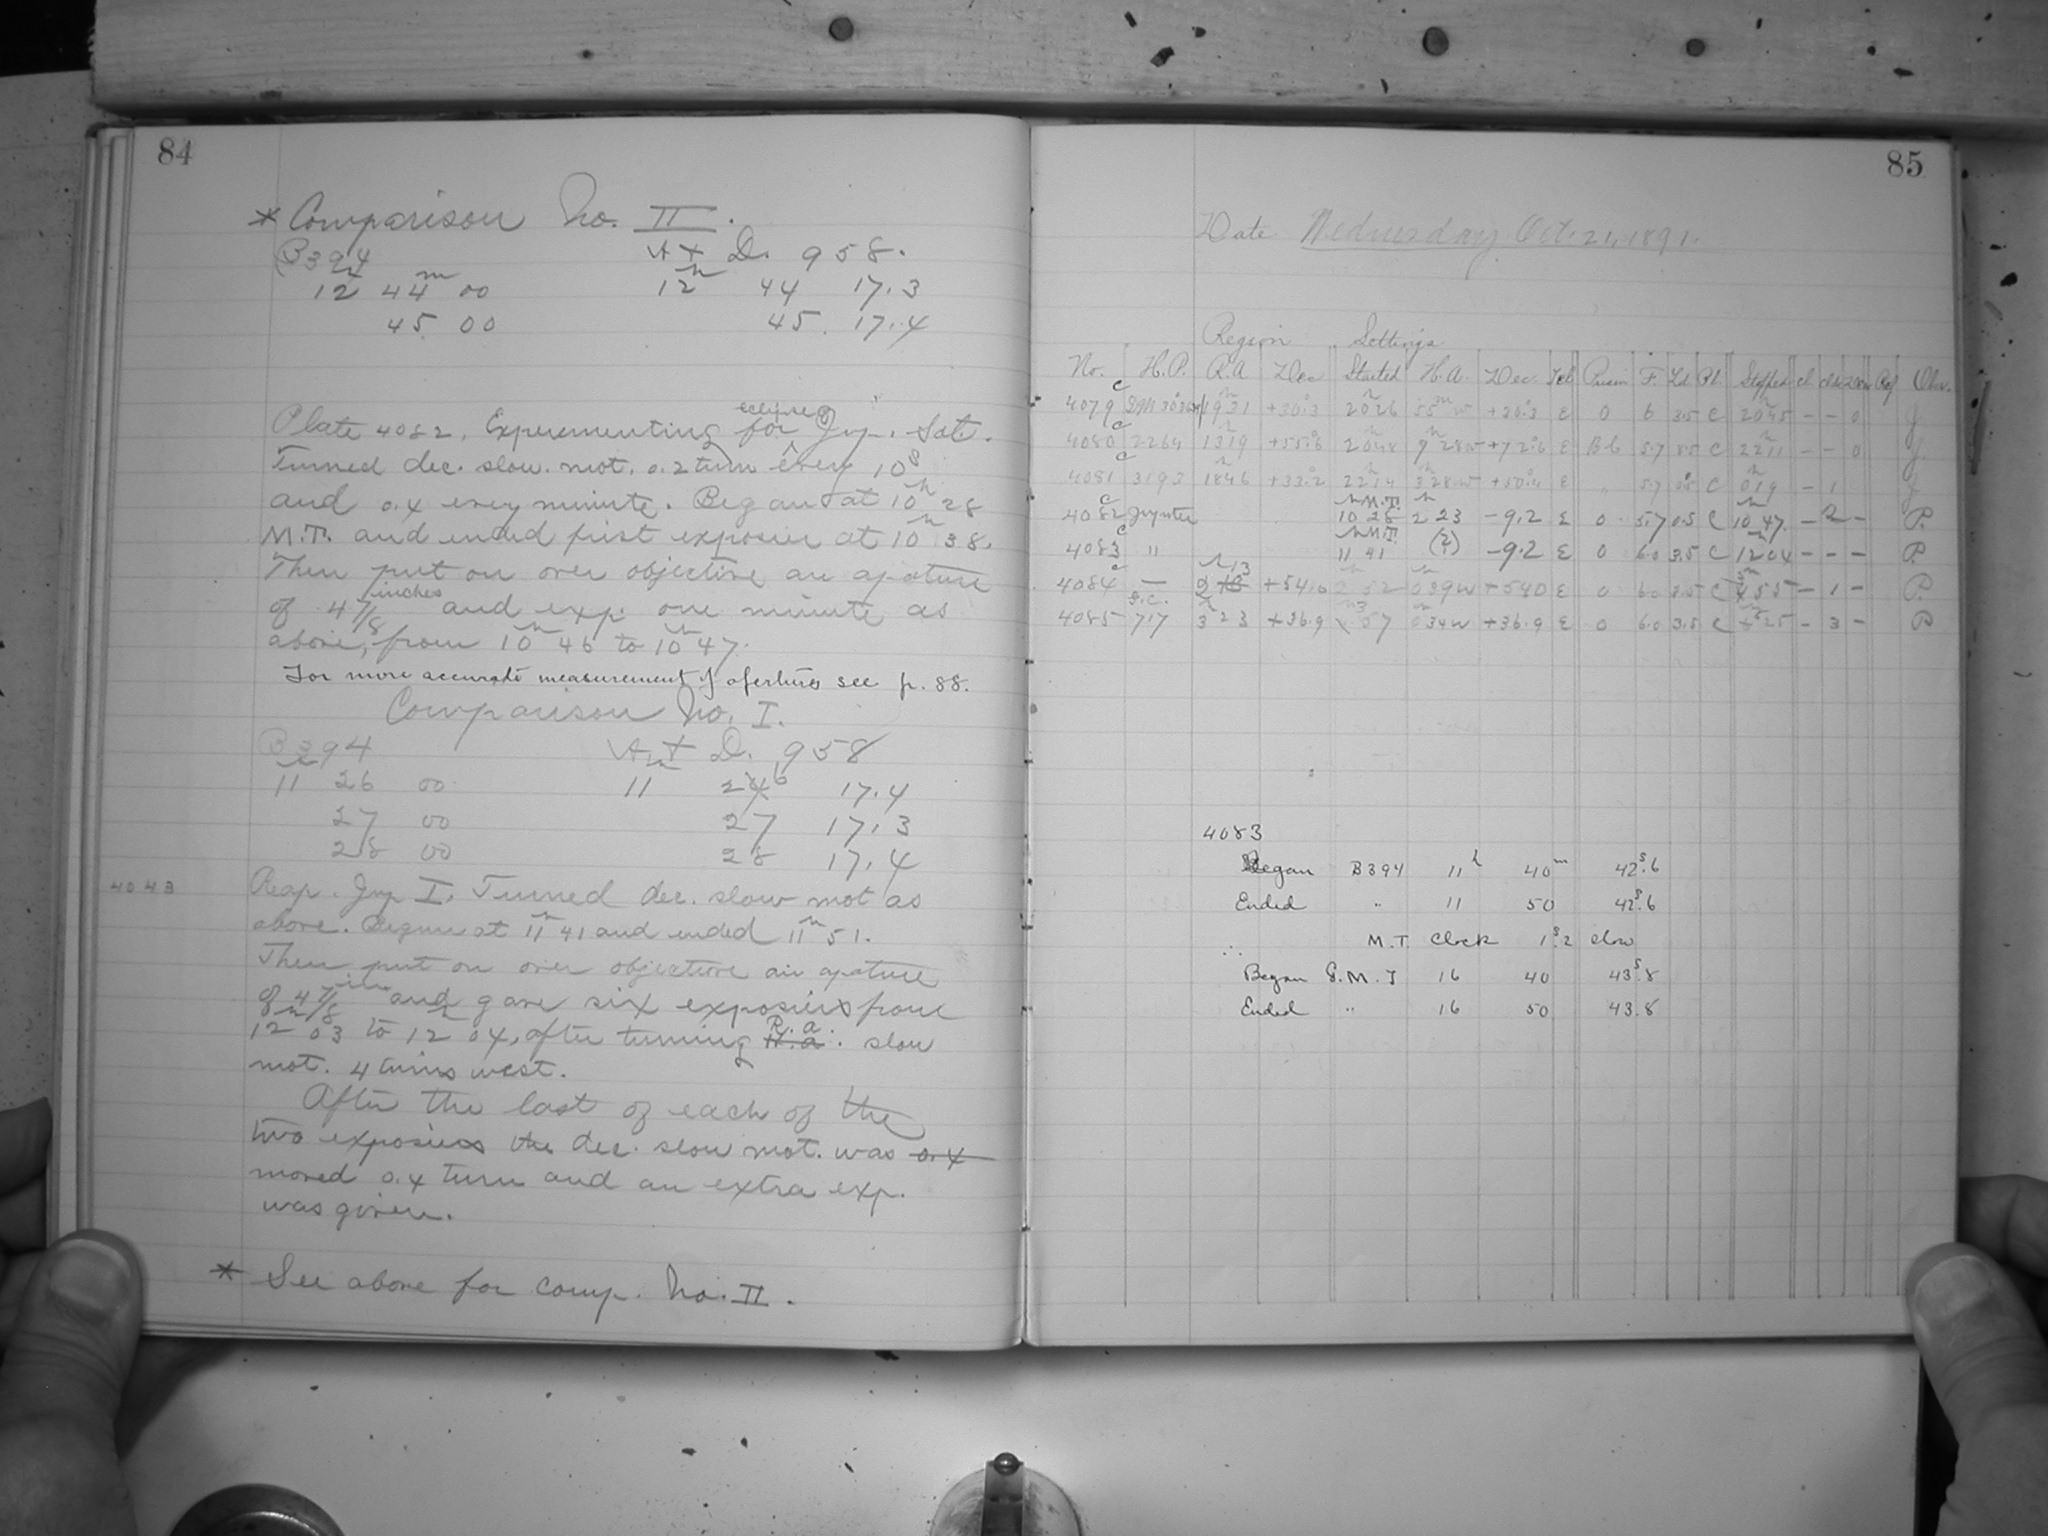 84
* Comparison No. II.
B394 A + D. 958.
12h 44m 00 12h 44 17.3
45 00 45. 17.4
Plate 4082. Experementing for eclipse of Jup. Sat.
Turned dec. slow. mot. 0.2 turn every 10s
and 0.4 every minute. Began at 10h 28
M.T. and ended first exposier at 10h 38.
Then put on over objective an apature
of 4 7/8 inches and exp. one minute as
above, from 10h 46 to 10h 47.
For more accurate measurement of apertures see p. 88.
Comparison No. I.
B394 A + D. 958
11h 26 00 11h 246 17.4
27 00 27 17.3
28 00 28 17.4
4043 Reap. Jup I. Turned dec. slow mot as
above. Began at 11h 41 and ended 11h 51.
Then put on over objective an apature
of 4 7/8 in and gave six exposiers from
12h 03 to 12h 04, after turning H.a. R.a. slow
mot. 4 turns west.
After the last of each of the
two exposiers the dec. slow mot. was 0.4
moved 0.4 turn and an extra exp.
was given.
* See above for comp. No. II.
85
Date Wednesday Oct. 21, 1891.
Region Settings
No. H.P. R.A Dec Started H.A. Dec. Tel Prism F. Ld Pl. Stopped cl Dew Ref Obs.
4079 c 19h31 +30.3 20h26 55m w +30.3 E 0 6 3.5 C 20h45 – – 0 J.
4080 c 2264 13h19 +55.6 20h48 9h28w +72.6 E Bb 5.7 C 22h11 – – 0 J.
4081 c 3193 18h46 +33.2 22h14 3h28w +50.4 E " 5.7 C 0h19 – 1 J
4082 c Jupiter h M.T. 10 28 2h 23 –9.2 E 0 5.7 0.5 C 10h 47. – 2 – P.
4083 c " h M.T. 11 41 (2) –9.2 E 0 6.0 3.5 C 12h04 – – – P.
4084 c — 2h 13 +54.0 2h 52 0h39w +54.0 E 0 6.0 3.5 C 55 – 1 – P.
4085 S.C. 717 3h 23 +36.9 57 0h34w +36.9 E 0 6.0 3.5 C 25 – 3 – P
4083
Began B394 11h 40m 42s.6
Ended " 11 50 42s.6
∴ M.T. Clock 1s.2 slow
Began G.M.T 16 40 43s.8
Ended " 16 50 43.8